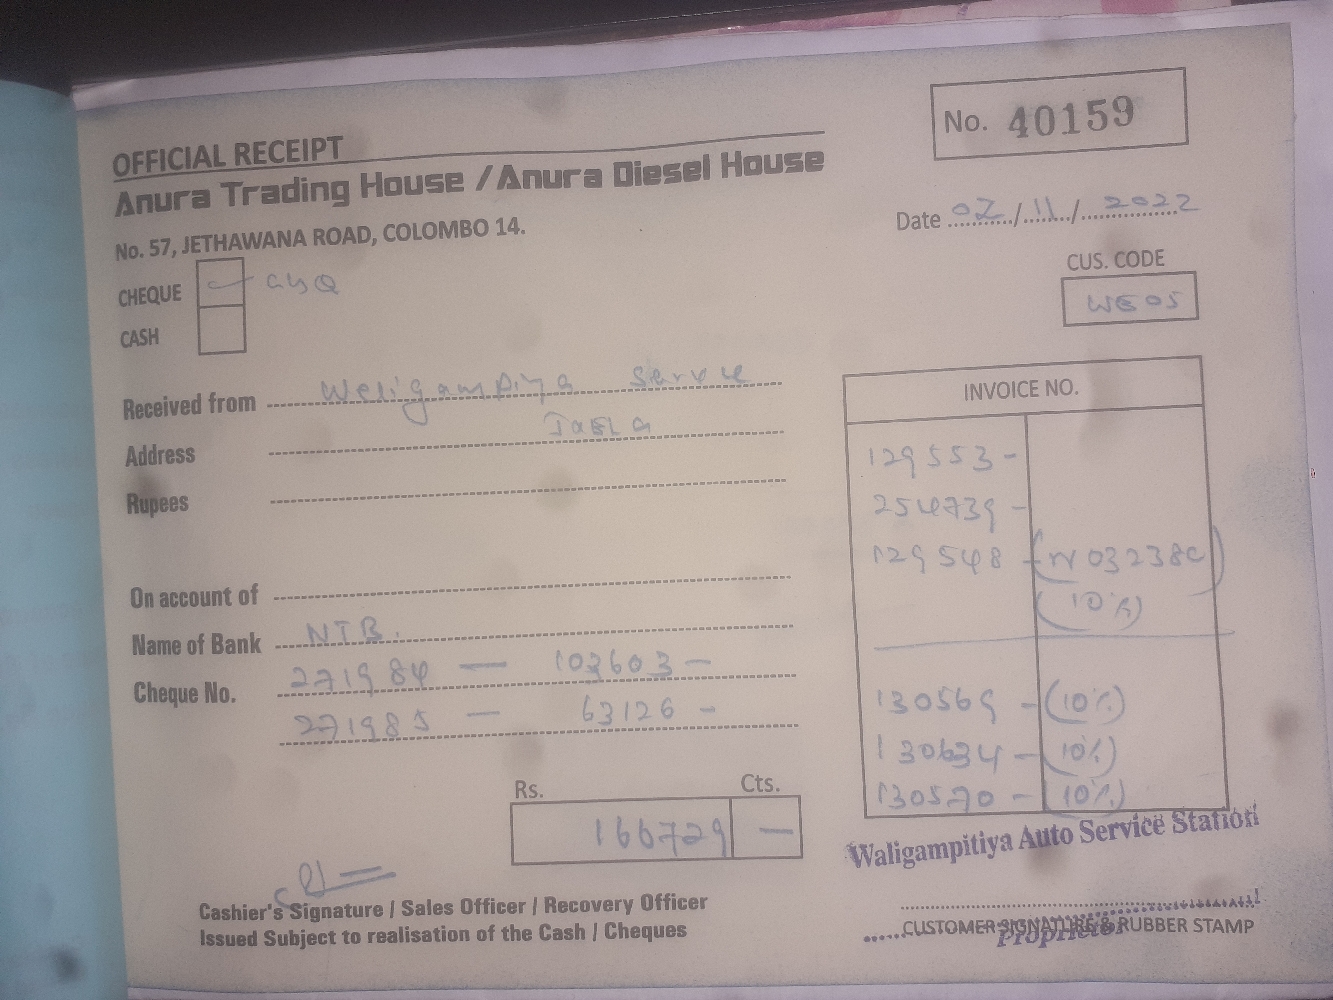 OFFICIAL RECEIPT
Anura Trading House / Anura Diesel House
No. 57, JETHAWANA ROAD, COLOMBO 14.
No. 40159
Date 02/11/2022
CUS. CODE
WE05
CHEQUE
CASH
Received from Weligampiya Service
Address Jaela
Rupees
On account of
Name of Bank NTB.
Cheque No. 271984 — 103603 -
271985 — 63126 -
Rs. Cts.
166729 —
INVOICE NO.
129553 -
254739 -
129548 - (W03238C)
(10%)
130569 - (10%)
130634 - (10%)
130570 - (10%)
Waligampitiya Auto Service Station
Cashier's Signature / Sales Officer / Recovery Officer
Issued Subject to realisation of the Cash / Cheques
CUSTOMER SIGNATURE & RUBBER STAMP
Proprietor